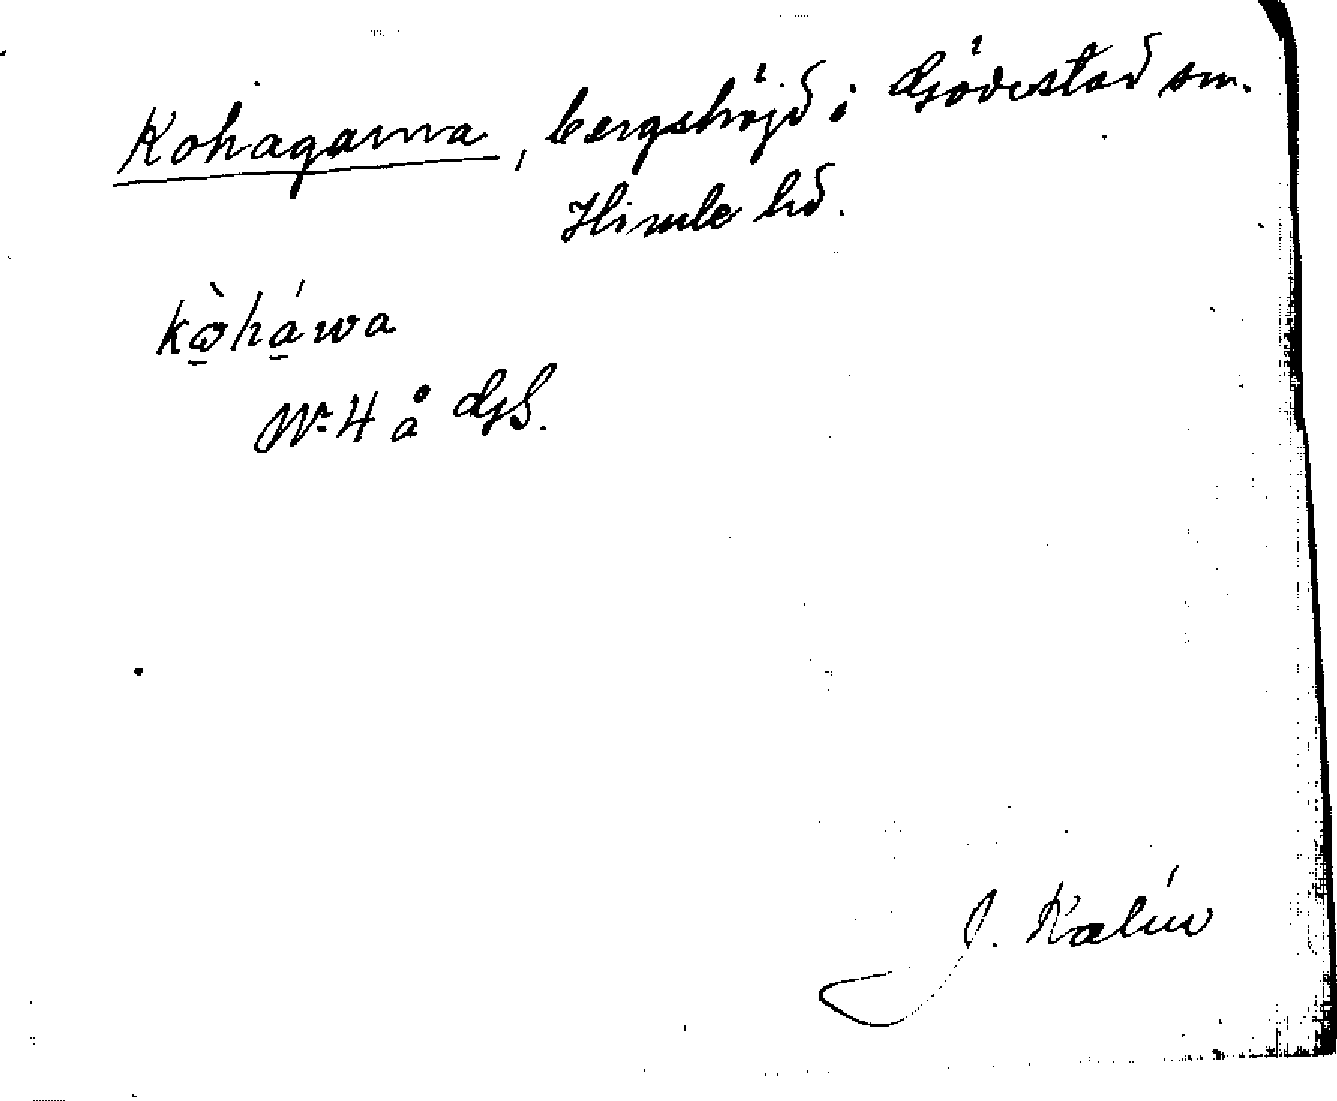 Kohagarna, bergshöjd i Gödestad sn.
Himle hd.
kòháwa
Nr 4 å GS.
J. Kalén